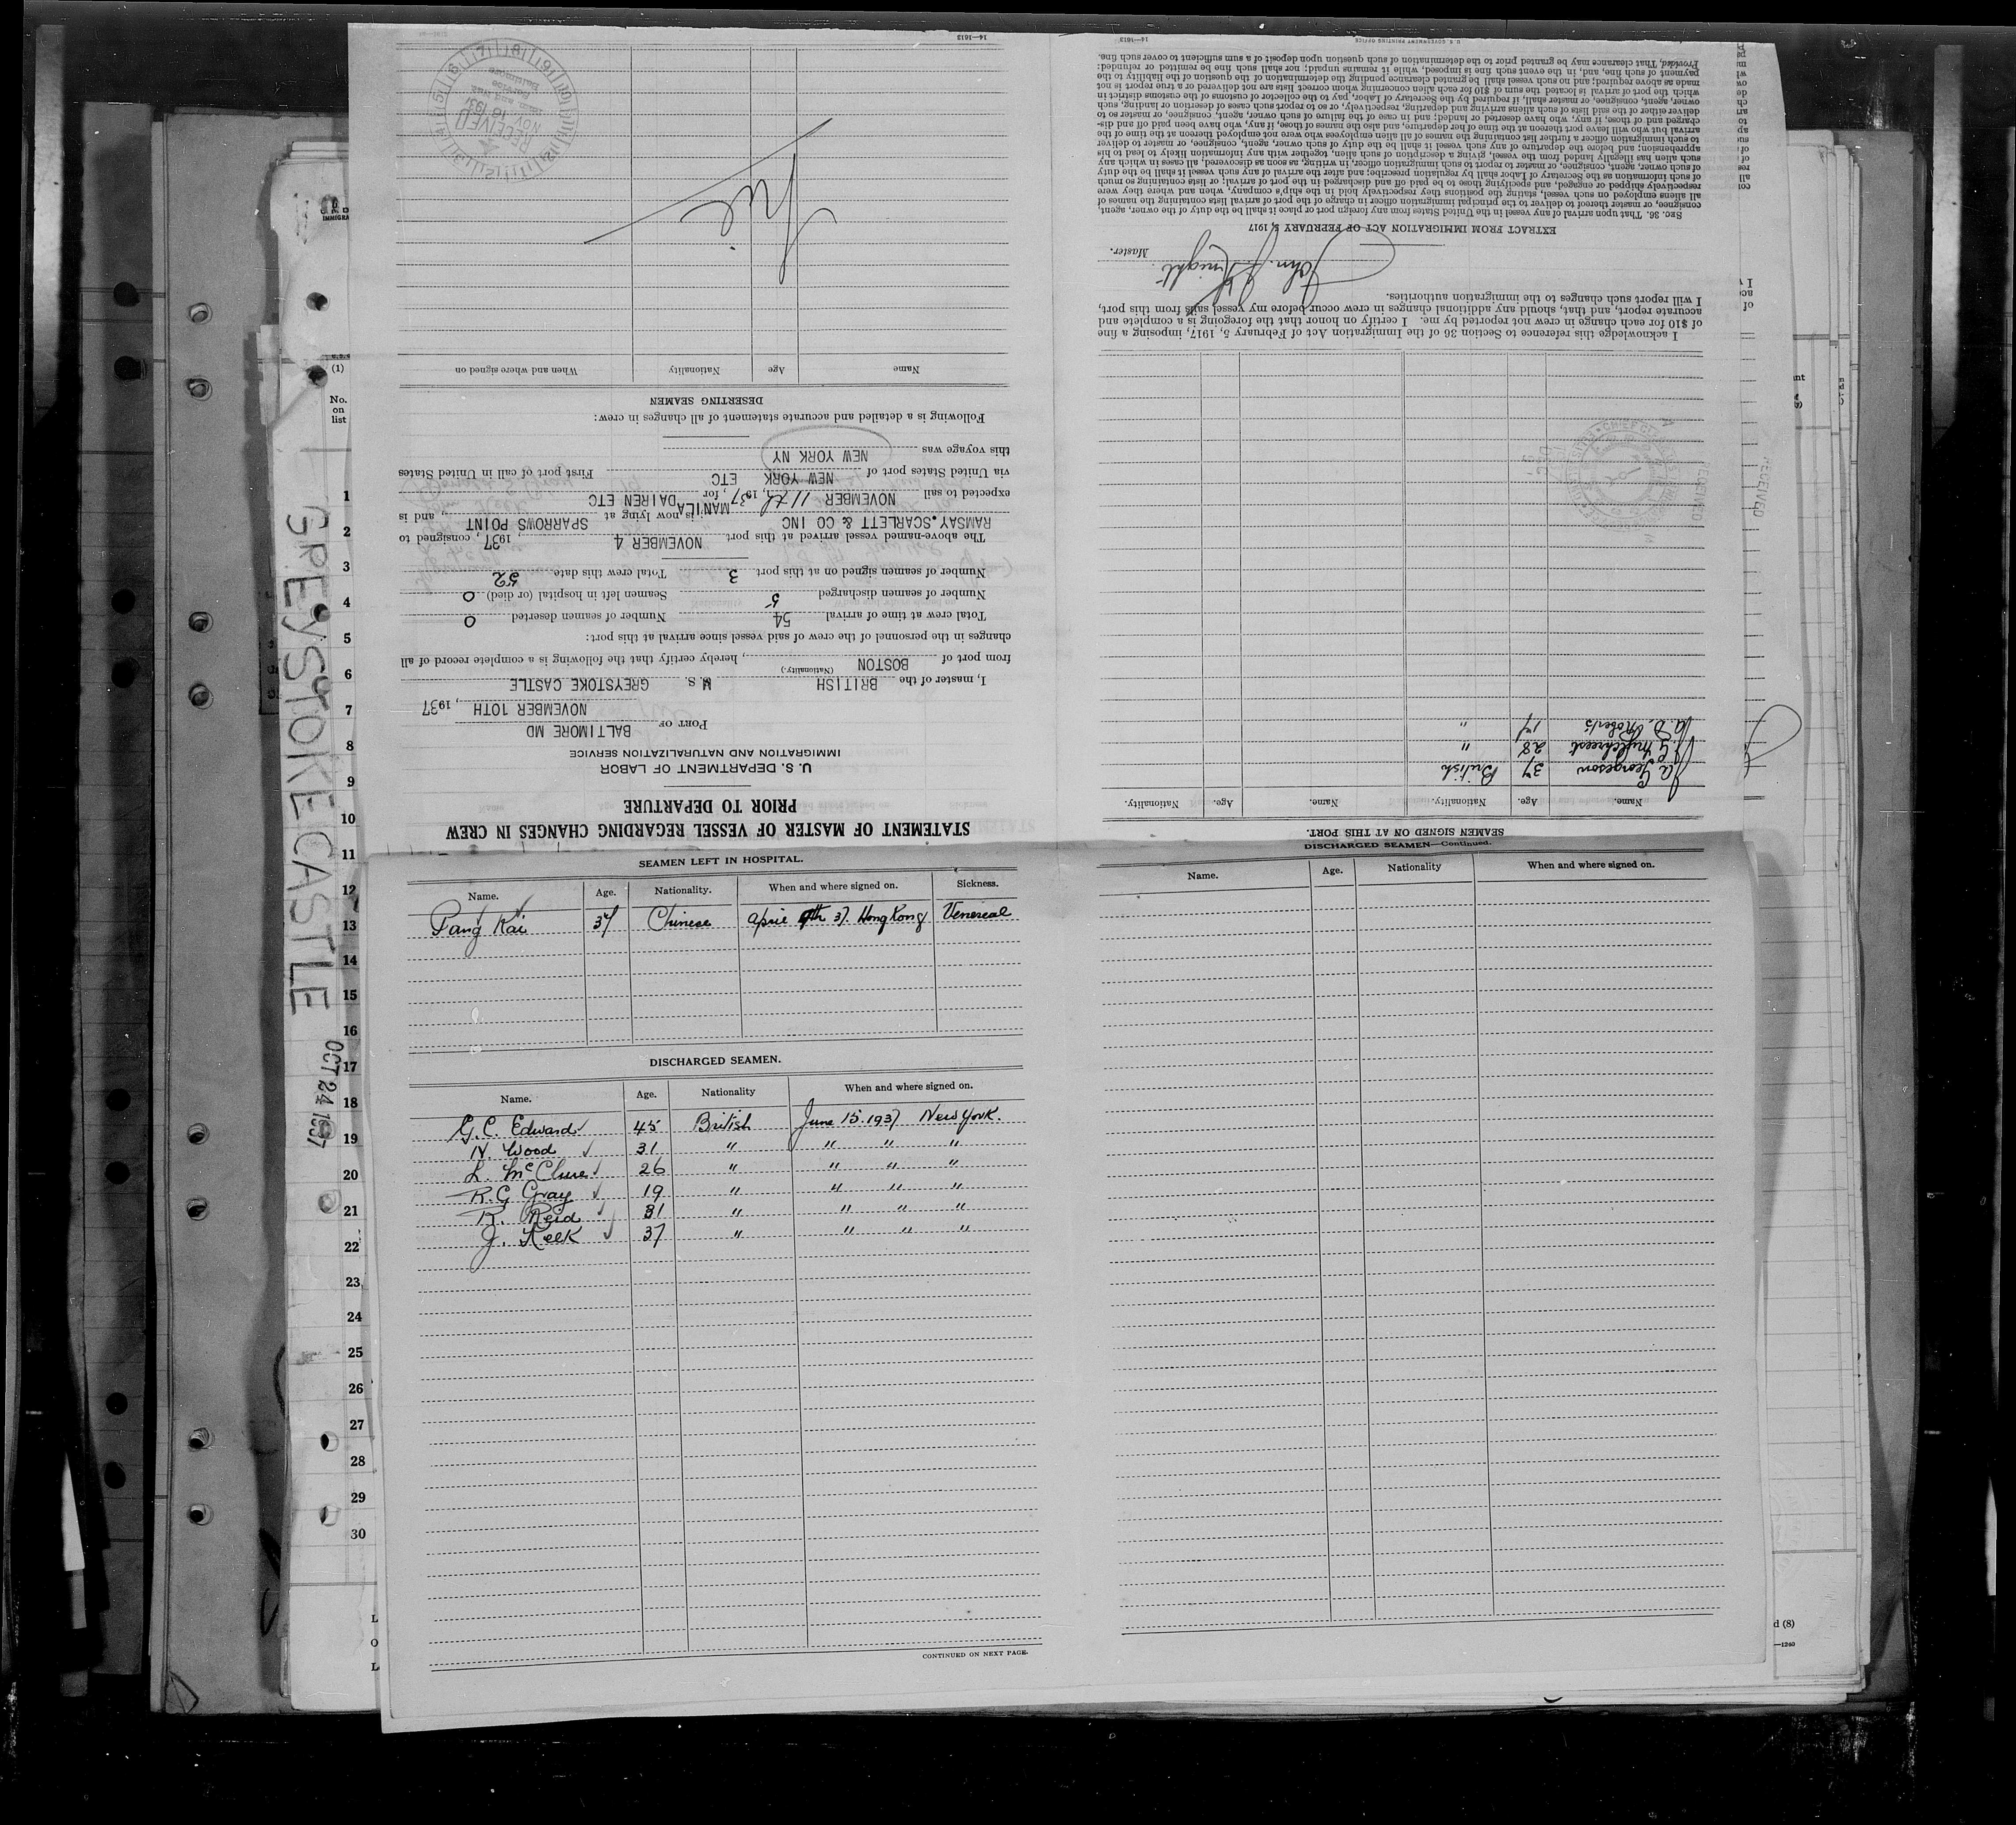 STATEMENT OF MASTER OF VESSEL REGARDING CHANGES IN CREW
PRIOR TO DEPARTURE
U. S. DEPARTMENT OF LABOR
IMMIGRATION AND NATURALIZATION SERVICE
PORT OF BALTIMORE MD
NOVEMBER 10TH, 1937
I, master of the BRITISH M.S. GREYSTOKE CASTLE
(Nationality.)
from port of BOSTON, hereby certify that the following is a complete record of all
changes in the personnel of the crew of said vessel since arrival at this port:
Total crew at time of arrival 54 Number of seamen deserted 0
Number of seamen discharged 5 Seamen left in hospital (or died) 0
Number of seamen signed on at this port 3 Total crew this date 52
The above-named vessel arrived at this port NOVEMBER 4, 1937, consigned to
RAMSAY.SCARLETT & CO INC, is now lying at SPARROWS POINT, and is
expected to sail NOVEMBER 11th, 1937, for MANILA DAIREN ETC
via United States port of NEW YORK ETC First port of call in United States
this voyage was NEW YORK NY
Following is a detailed and accurate statement of all changes in crew:
DESERTING SEAMEN
Name Age Nationality When and where signed on
RECEIVED
NOV 10 1937
14—1613
SEAMEN SIGNED ON AT THIS PORT.
Name. Age. Nationality. Name. Age. Nationality.
A Georgeson 37 British
28 "
A. D. Roberts 17 "
I acknowledge this reference to Section 36 of the Immigration Act of February 5, 1917, imposing a fine
of $10 for each change in crew not reported by me. I certify on honor that the foregoing is a complete and
accurate report, and that, should any additional changes in crew occur before my vessel sails from this port,
I will report such changes to the immigration authorities.
John J. Knight
Master.
EXTRACT FROM IMMIGRATION ACT OF FEBRUARY 5, 1917
SEC. 36. That upon arrival of any vessel in the United States from any foreign port or place it shall be the duty of the owner, agent,
consignee, or master thereof to deliver to the principal immigration officer in charge of the port of arrival lists containing the names of
all aliens employed on such vessel, stating the positions they respectively hold in the ship's company, when and where they were
respectively shipped or engaged, and specifying those to be paid off and discharged in the port of arrival; or lists containing so much
of such information as the Secretary of Labor shall by regulation prescribe; and after the arrival of any such vessel it shall be the duty
of such owner, agent, consignee, or master to report to such immigration officer, in writing, as soon as discovered, all cases in which any
such alien has illegally landed from the vessel, giving a description of such alien, together with any information likely to lead to his
apprehension; and before the departure of any such vessel it shall be the duty of such owner, agent, consignee, or master to deliver
to such immigration officer a further list containing the names of all alien employees who were not employed thereon at the time of the
arrival but who will leave port thereon at the time of her departure, and also the names of those, if any, who have been paid off and dis-
charged and of those, if any, who have deserted or landed; and in case of the failure of such owner, agent, consignee, or master so to
deliver either of the said lists of such aliens arriving and departing, respectively, or so to report such cases of desertion or landing, such
owner, agent, consignee, or master shall, if required by the Secretary of Labor, pay to the collector of customs of the customs district in
which the port of arrival is located the sum of $10 for each alien concerning whom correct lists are not delivered or a true report is not
made as above required; and no such vessel shall be granted clearance pending the determination of the question of the liability to the
payment of such fine, and, in the event such fine is imposed, while it remains unpaid; nor shall such fine be remitted or refunded:
Provided, That clearance may be granted prior to the determination of such question upon deposit of a sum sufficient to cover such fine.
U. S. GOVERNMENT PRINTING OFFICE
14—1613
SEAMEN LEFT IN HOSPITAL.
Name. Age. Nationality. When and where signed on. Sickness.
Pang Kai 37 Chinese April 9th 37. Hong Kong Venereal
DISCHARGED SEAMEN.
Name. Age. Nationality When and where signed on.
G.C. Edward 45 British June 15.1937 New York.
N. Wood 31 " " " "
L. McClure 26 " " " "
R.G Gray 19 " " " "
R. Reid 31 " " " "
J. Keek 37 " " " "
CONTINUED ON NEXT PAGE.
DISCHARGED SEAMEN—Continued.
Name. Age. Nationality When and where signed on.
GREYSTOKE CASTLE
OCT 24 1937
(1)
No.
on
list
1
2
3
4
5
6
7
8
9
10
11
12
13
14
15
16
17
18
19
20
21
22
23
24
25
26
27
28
29
30
d (8)
—1240
RECEIVED